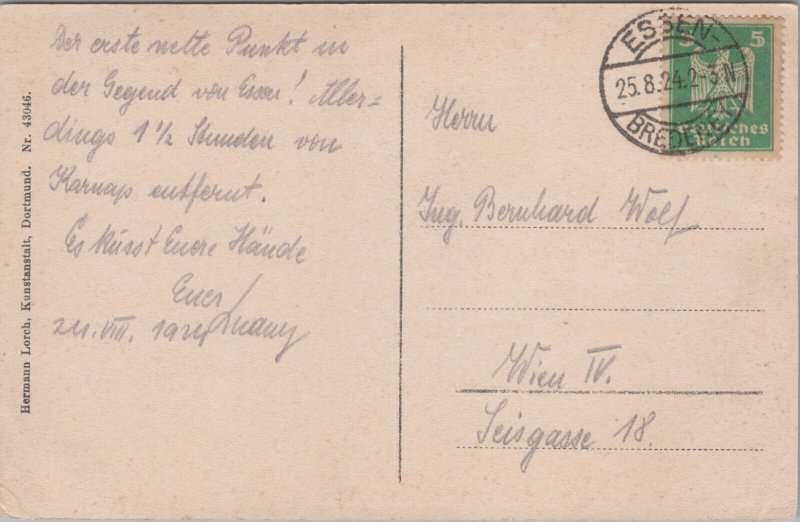 Der erste nette Punkt in
der Gegend von Essen! Aller=
dings 1 1/2 Stunden von
Karnap entfernt.
Es küsst Euere Hände
Euer
24. VIII. 1924
Herrn
Ing. Bernhard Wolf
Wien IV.
Seisgasse 18.
ESSEN-
25.8.24.2-3 N
BREDENEY
5 5
Deutsches
Reich
Hermann Lorch, Kunstanstalt, Dortmund. Nr. 43046.